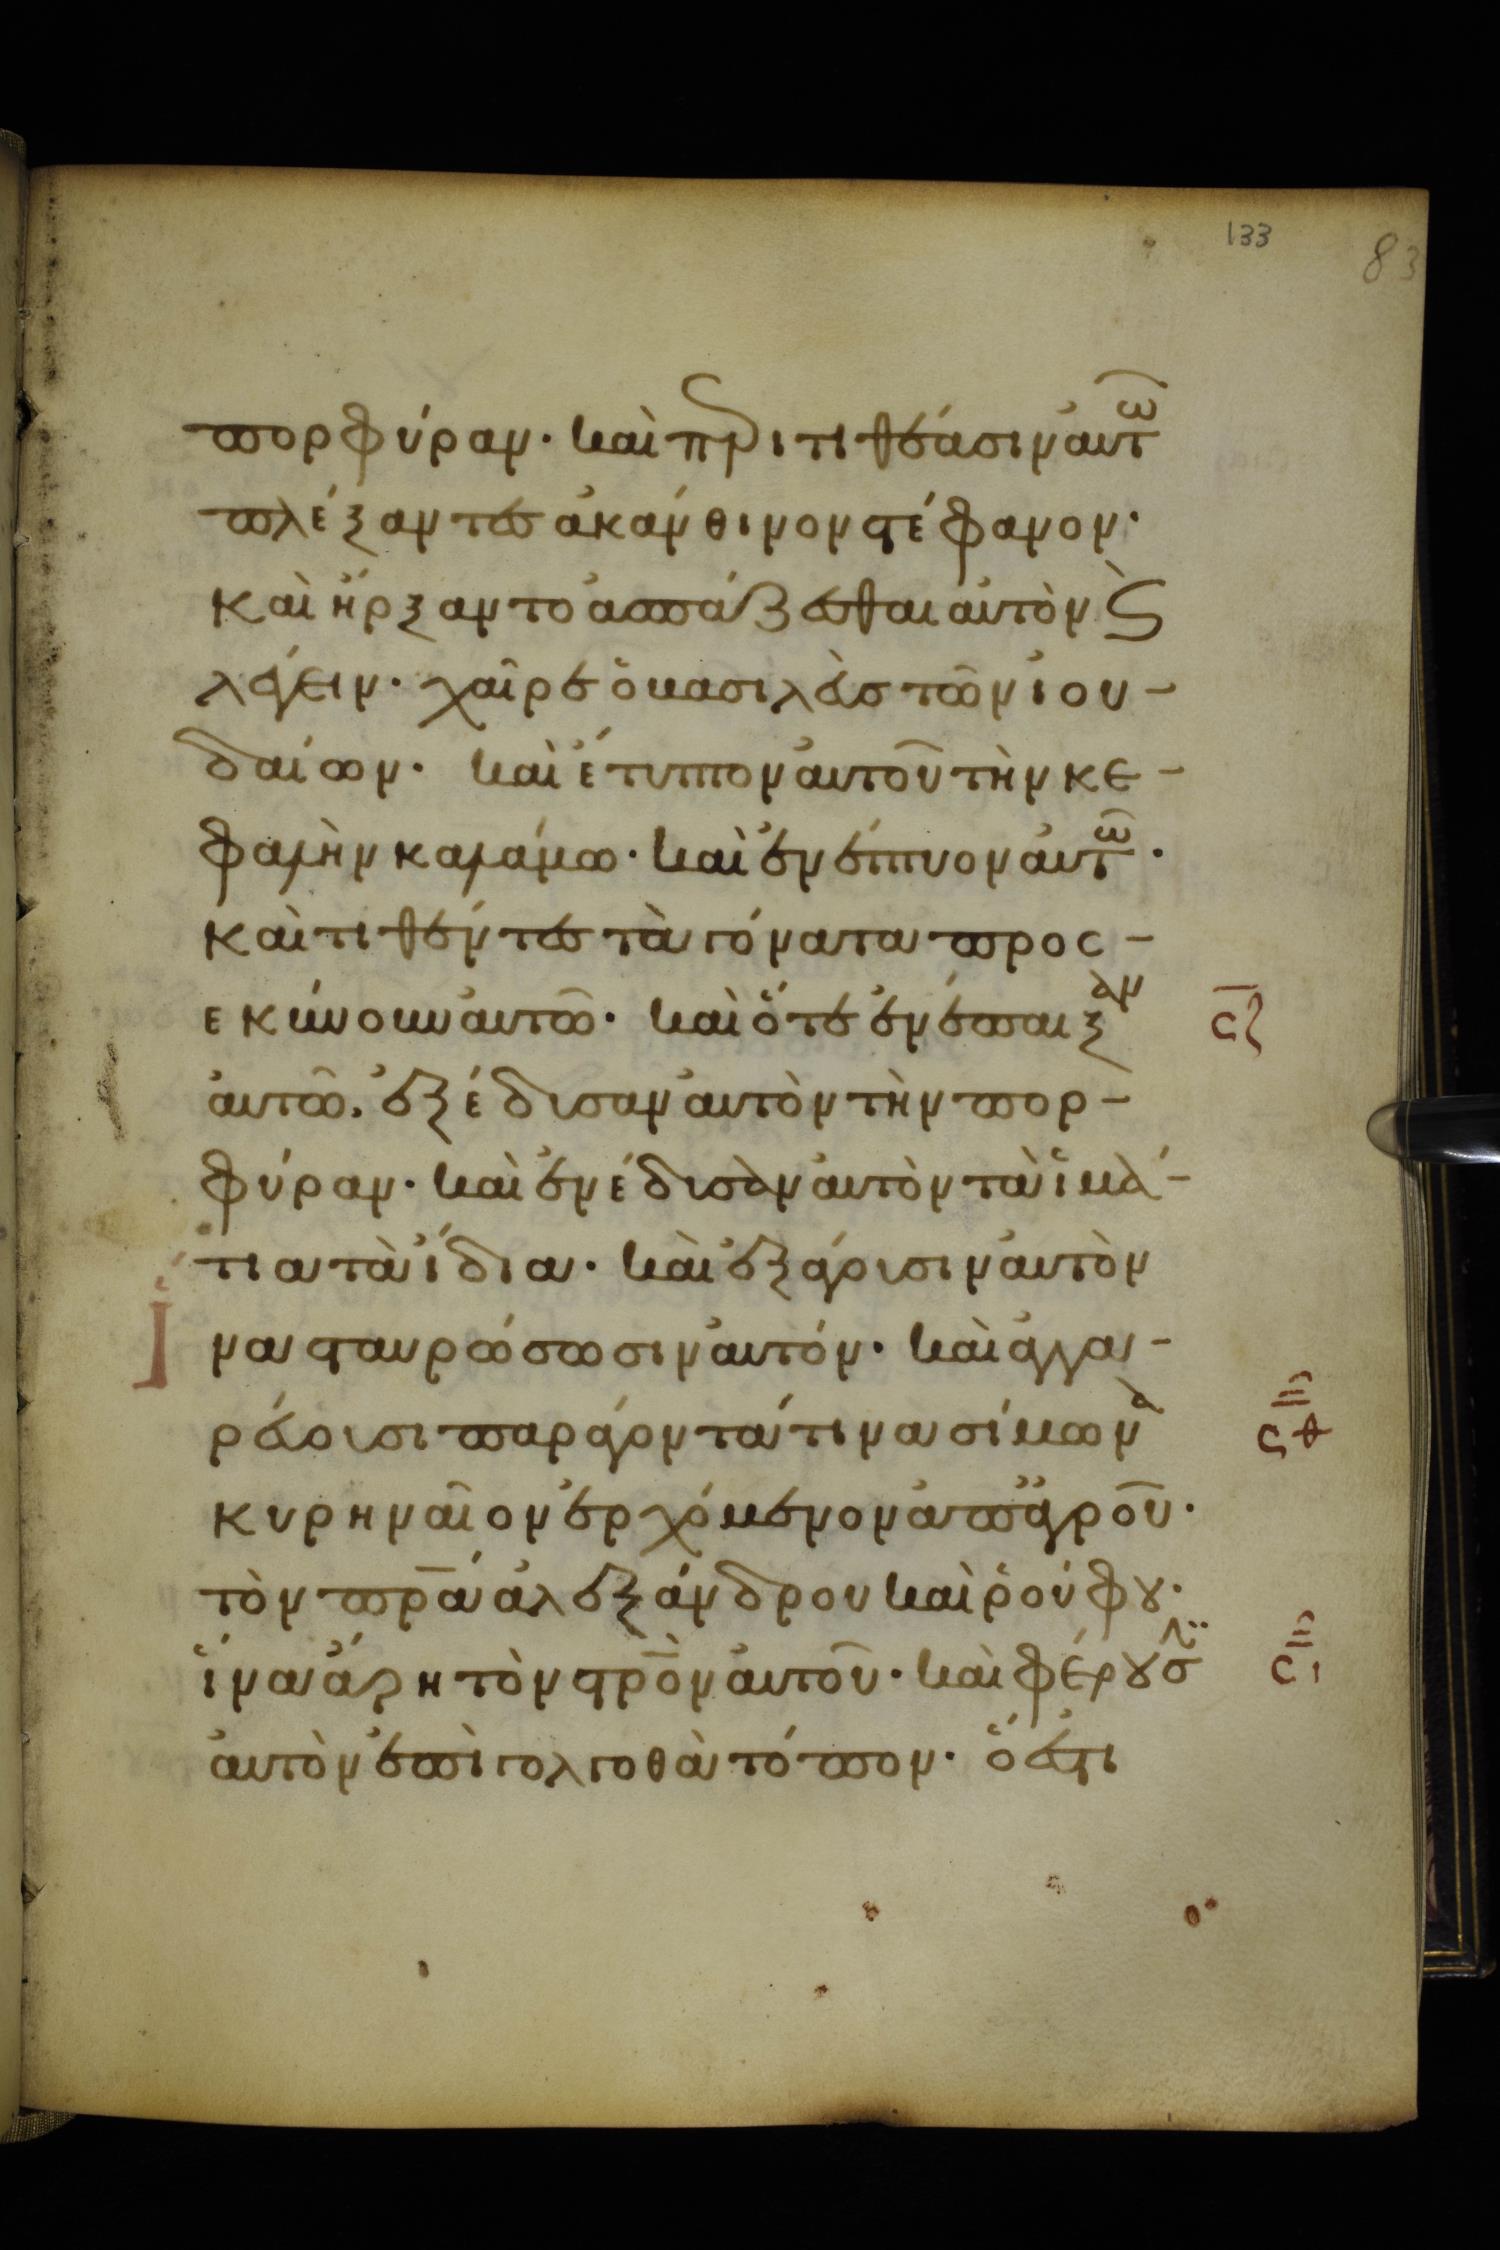 133 83
πορφύραν· καὶ περιτιθέασιν αὐτῶ
πλέξαντες ἀκάνθινον στέφανον·
καὶ ἤρξαντο ἀσπάζεσθαι αὐτὸν ϛ̀
λέγειν· χαῖρε ὁ βασιλεὺς τῶν ἰου-
δαίων· καὶ ἔτυπτον αὐτοῦ τὴν κε-
φαλὴν καλάμω· καὶ ἐνέπτυον αὐτῶ·
καὶ τιθέντες τὰ γόνατα προσ-
εκύνουν αὐτῶ· καὶ ὅτε ἐνέπαιξαν
αὐτῶ. ἐξέδυσαν αὐτὸν τὴν πορ-
φύραν· καὶ ἐνέδυσαν αὐτὸν τὰ ἱμά-
τια τὰ ἴδια· καὶ ἐξάγουσιν αὐτὸν
ἵνα σταυρώσωσιν αὐτόν· καὶ ἀγγα-
ρεύουσι παράγοντά τινα σίμωνα
κυρηναῖον ἐρχόμενον ἀπ ἀγροῦ·
τὸν πρ̅α ἀλεξάνδρου καὶ ῥούφου·
ἵνα ἄρη τὸν στρ̅ον αὐτοῦ· καὶ φέρουσιν
αὐτὸν ἐπὶ γολγοθὰ τόπον· ὅ ἐστι